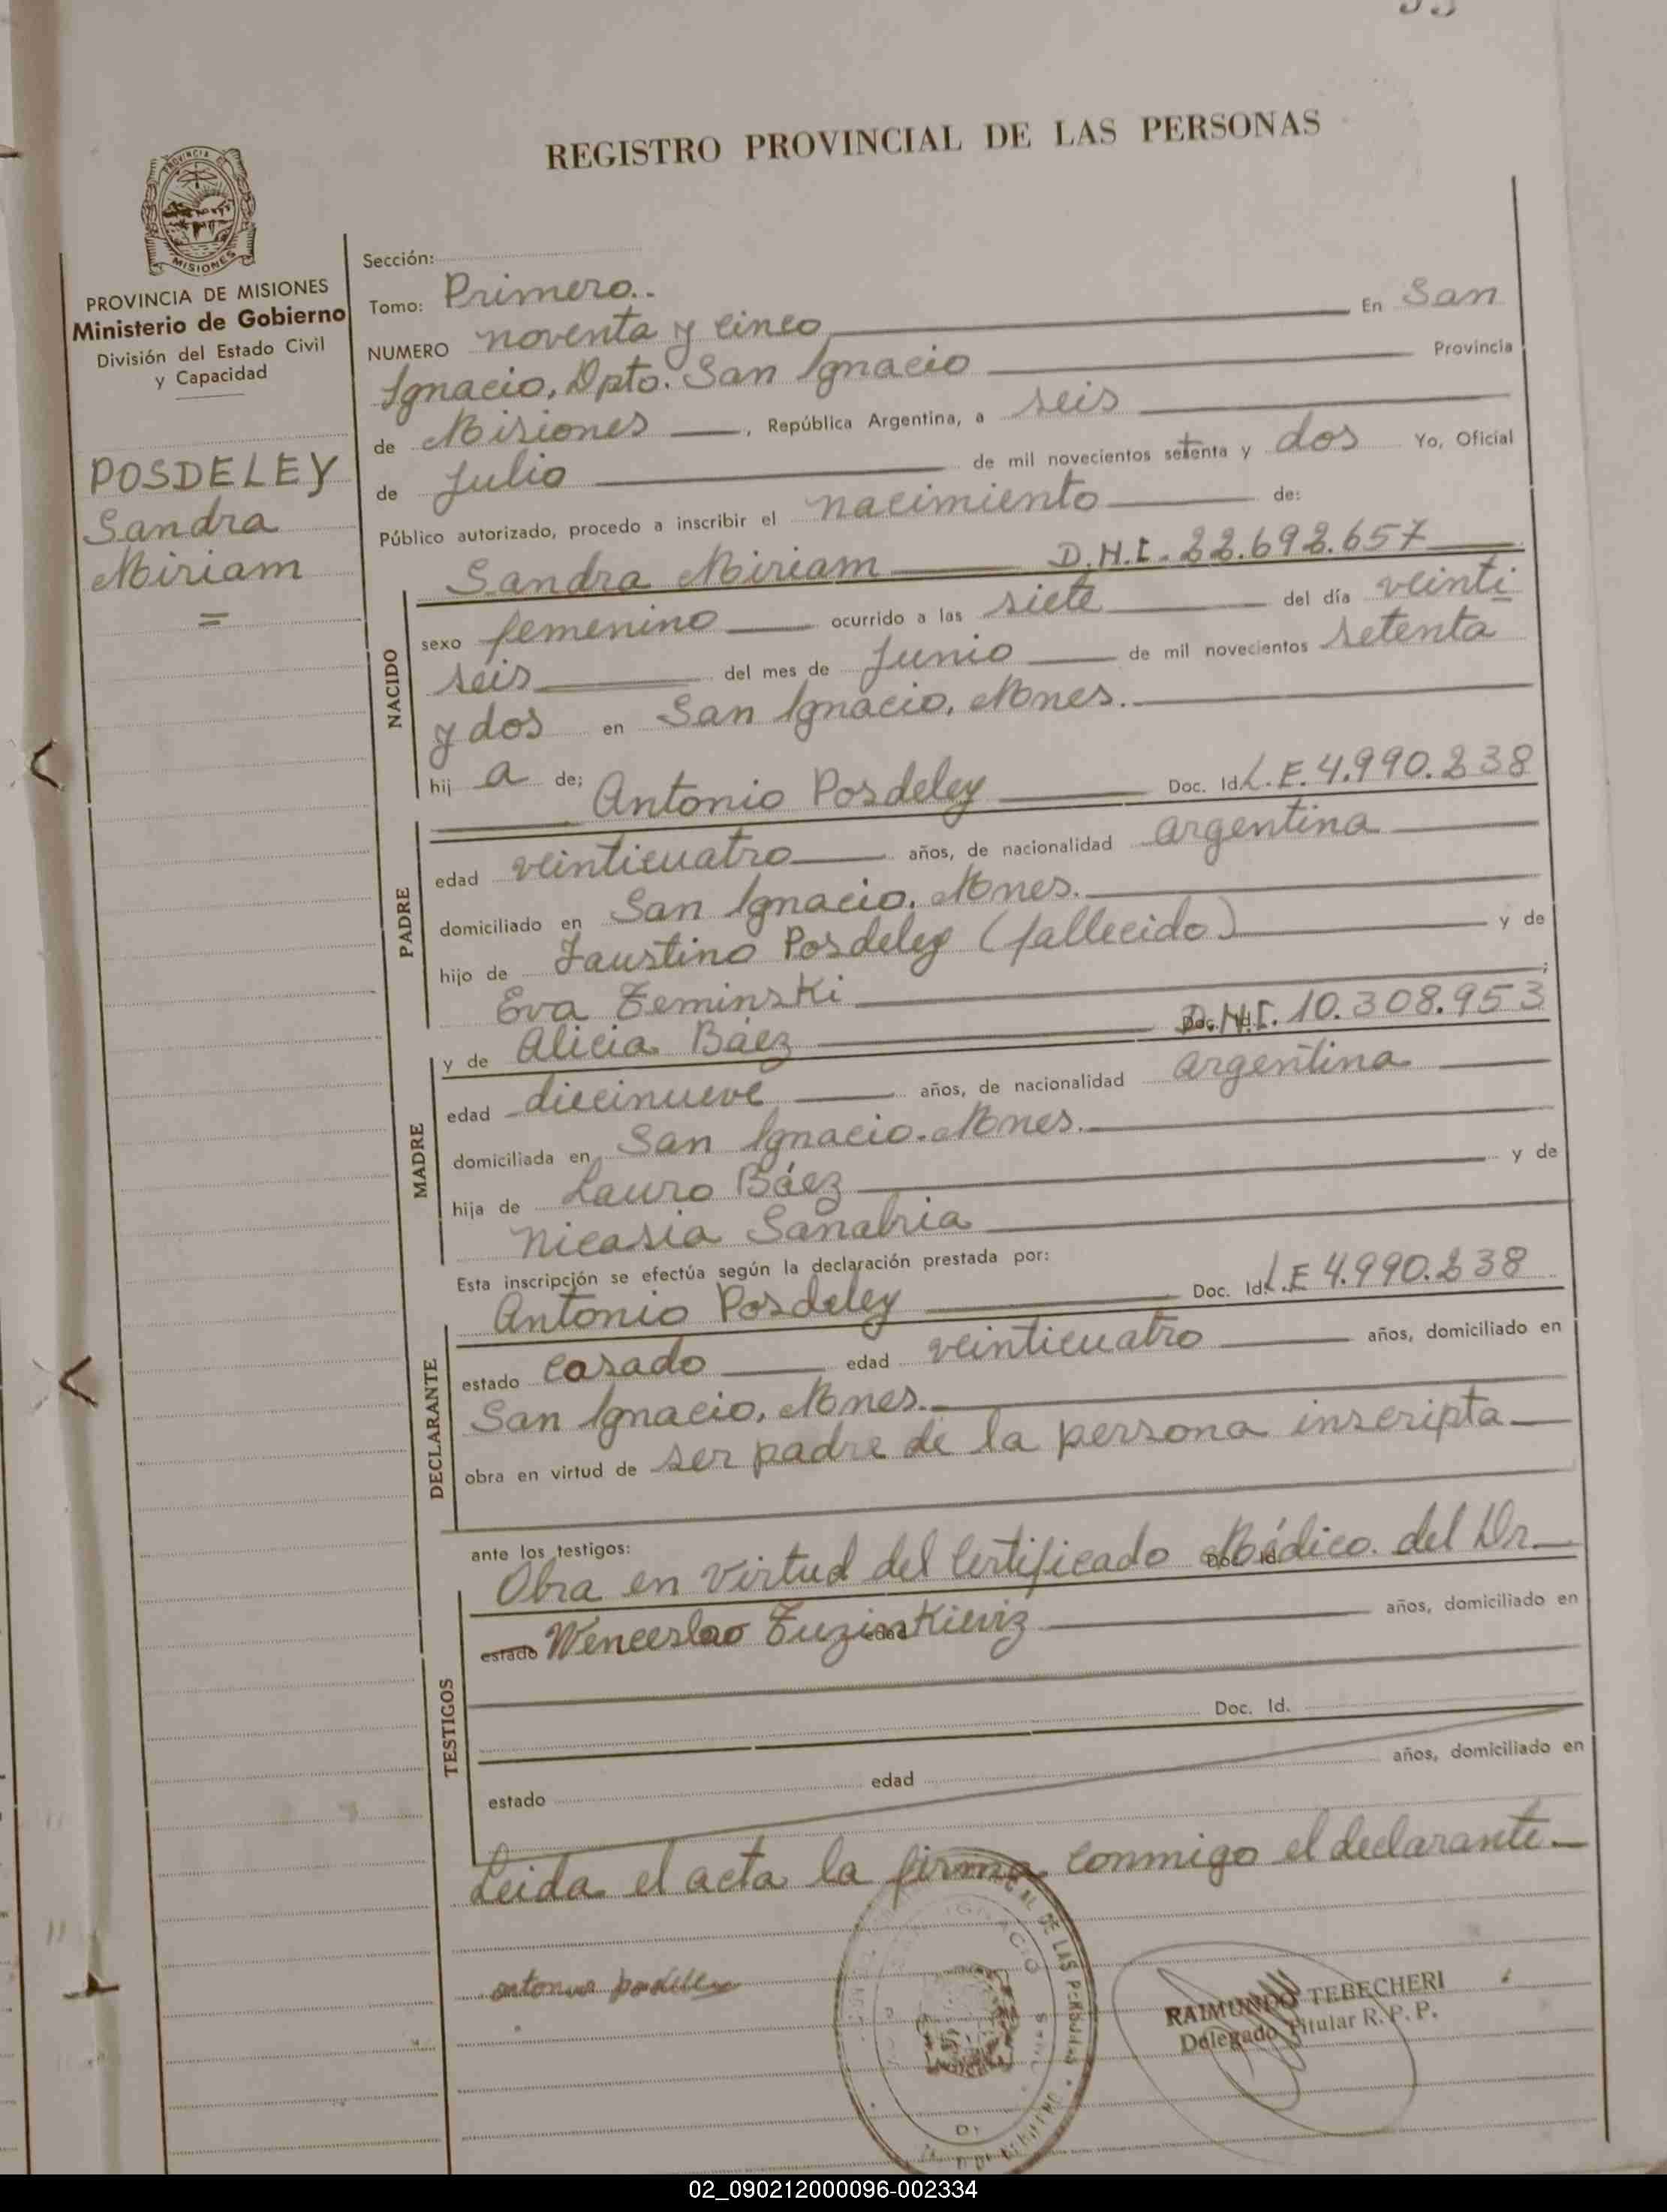 REGISTRO PROVINCIAL DE LAS PERSONAS
PROVINCIA DE MISIONES
Ministerio de Gobierno
División del Estado Civil
y Capacidad
POSDELEY
Sandra
Miriam
=
Sección:
Tomo: Primero..
NUMERO noventa y cinco En San
Ignacio, Dpto. San Ignacio Provincia
de Misiones, República Argentina, a seis
de Julio de mil novecientos setenta y dos Yo, Oficial
Público autorizado, procedo a inscribir el nacimiento de:
NACIDO
Sandra Miriam D.N.I. 22.692.657
sexo femenino ocurrido a las siete del día veinti
seis del mes de Junio de mil novecientos setenta
y dos en San Ignacio, Mnes.
hij a de; Antonio Posdeley Doc. Id. L.E. 4.990.238
PADRE
edad veinticuatro años, de nacionalidad argentina
domiciliado en San Ignacio, Mnes.
hijo de Faustino Posdeley (fallecido) y de
Eva Zeminski ;
y de Alicia Báez Doc. Id. D.N.I. 10.308.953
MADRE
edad diecinueve años, de nacionalidad argentina
domiciliada en San Ignacio. Mnes.
hija de Lauro Báez y de
Nicasia Sanabria
Esta inscripción se efectúa según la declaración prestada por:
Antonio Posdeley Doc. Id. L.E 4.990.238
DECLARANTE
estado casado edad veinticuatro años, domiciliado en
San Ignacio, Mnes.
obra en virtud de ser padre de la persona inscripta
ante los testigos:
Obra en virtud del Certificado Médico. Doc. Id. del Dr.
TESTIGOS
estado Wenceslao edad años, domiciliado en
Doc. Id.
estado edad años, domiciliado en
Leida el acta la firma conmigo el declarante.
RAIMUNDO TEBECHERI
Delegado Titular R. P. P.
02_090212000096-002334